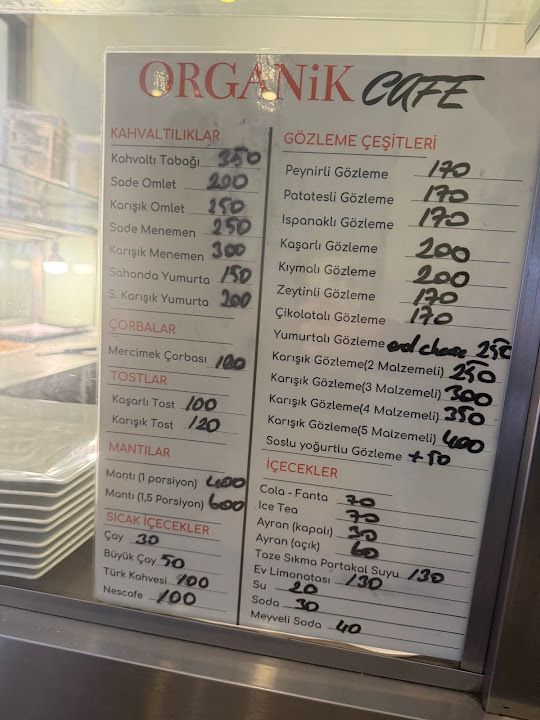 ORGANiK CAFE
KAHVALTILIKLAR
Kahvaltı Tabağı 350
Sade Omlet 200
Karışık Omlet 250
Sade Menemen 250
Karışık Menemen 300
Sahanda Yumurta 150
S. Karışık Yumurta 200
ÇORBALAR
Mercimek Çorbası 100
TOSTLAR
Kaşarlı Tost 100
Karışık Tost 120
MANTILAR
Mantı (1 porsiyon) 400
Mantı (1,5 Porsiyon) 600
SICAK İÇECEKLER
Çay 30
Büyük Çay 50
Türk Kahvesi 100
Nescafe 100
GÖZLEME ÇEŞİTLERİ
Peynirli Gözleme 170
Patatesli Gözleme 170
Ispanaklı Gözleme 170
Kaşarlı Gözleme 200
Kıymalı Gözleme 200
Zeytinli Gözleme 170
Çikolatalı Gözleme 170
Yumurtalı Gözleme and chese 250
Karışık Gözleme(2 Malzemeli) 250
Karışık Gözleme(3 Malzemeli) 300
Karışık Gözleme(4 Malzemeli) 350
Karışık Gözleme(5 Malzemeli) 400
Soslu yoğurtlu Gözleme +50
İÇECEKLER
Cola - Fanta 70
Ice Tea 70
Ayran (kapalı) 30
Ayran (açık) 60
Taze Sıkma Portakal Suyu 130
Ev Limonatası 130
Su 20
Soda 30
Meyveli Soda 40